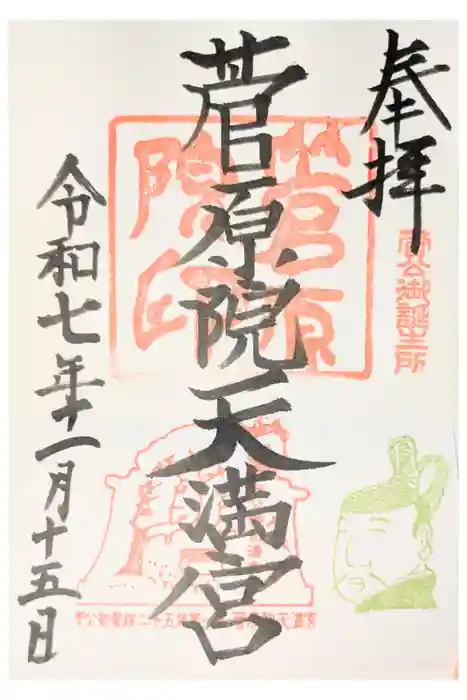 奉拝
菅公御誕生所
菅原院天満宮
菅原院印
令和七年十一月十五日